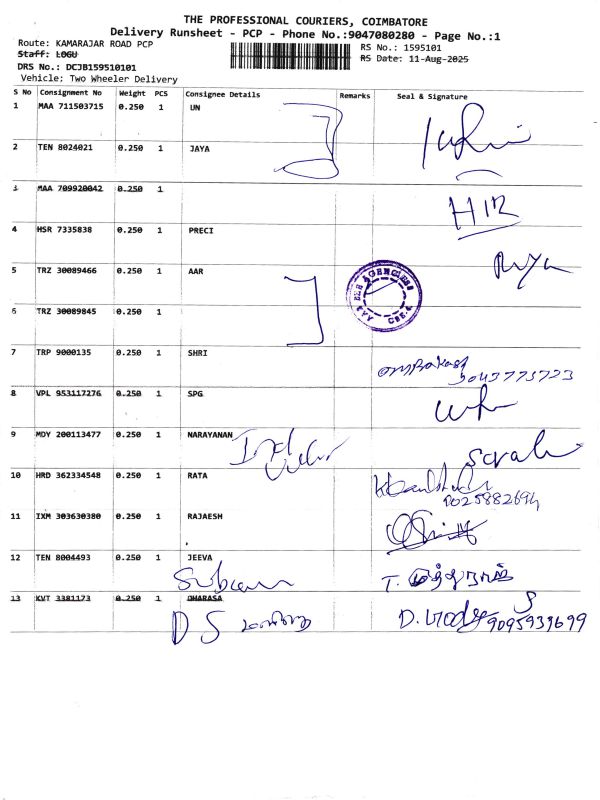 THE PROFESSIONAL COURIERS, COIMBATORE
Delivery Runsheet - PCP - Phone No.:9047080280 - Page No.:1
Route: KAMARAJAR ROAD PCP
RS No.: 1595101
Staff: LOGU
RS Date: 11-Aug-2025
DRS No.: DCJB159510101
Vehicle: Two Wheeler Delivery
S No Consignment No Weight PCS Consignee Details Remarks Seal & Signature
1 MAA 711503715 0.250 1 UN
2 TEN 8024021 0.250 1 JAYA
3 MAA 709920042 0.250 1
4 HSR 7335838 0.250 1 PRECI
5 TRZ 30089466 0.250 1 AAR
6 TRZ 30089845 0.250 1
7 TRP 9000135 0.250 1 SHRI
8 VPL 953117276 0.250 1 SPG
9 MDY 200113477 0.250 1 NARAYANAN
10 HRD 362334548 0.250 1 RATA
11 IXM 303630380 0.250 1 RAJAESH
12 TEN 8004493 0.250 1 JEEVA
13 KVT 3381173 0.250 1 DHARASA
D S
9095939699